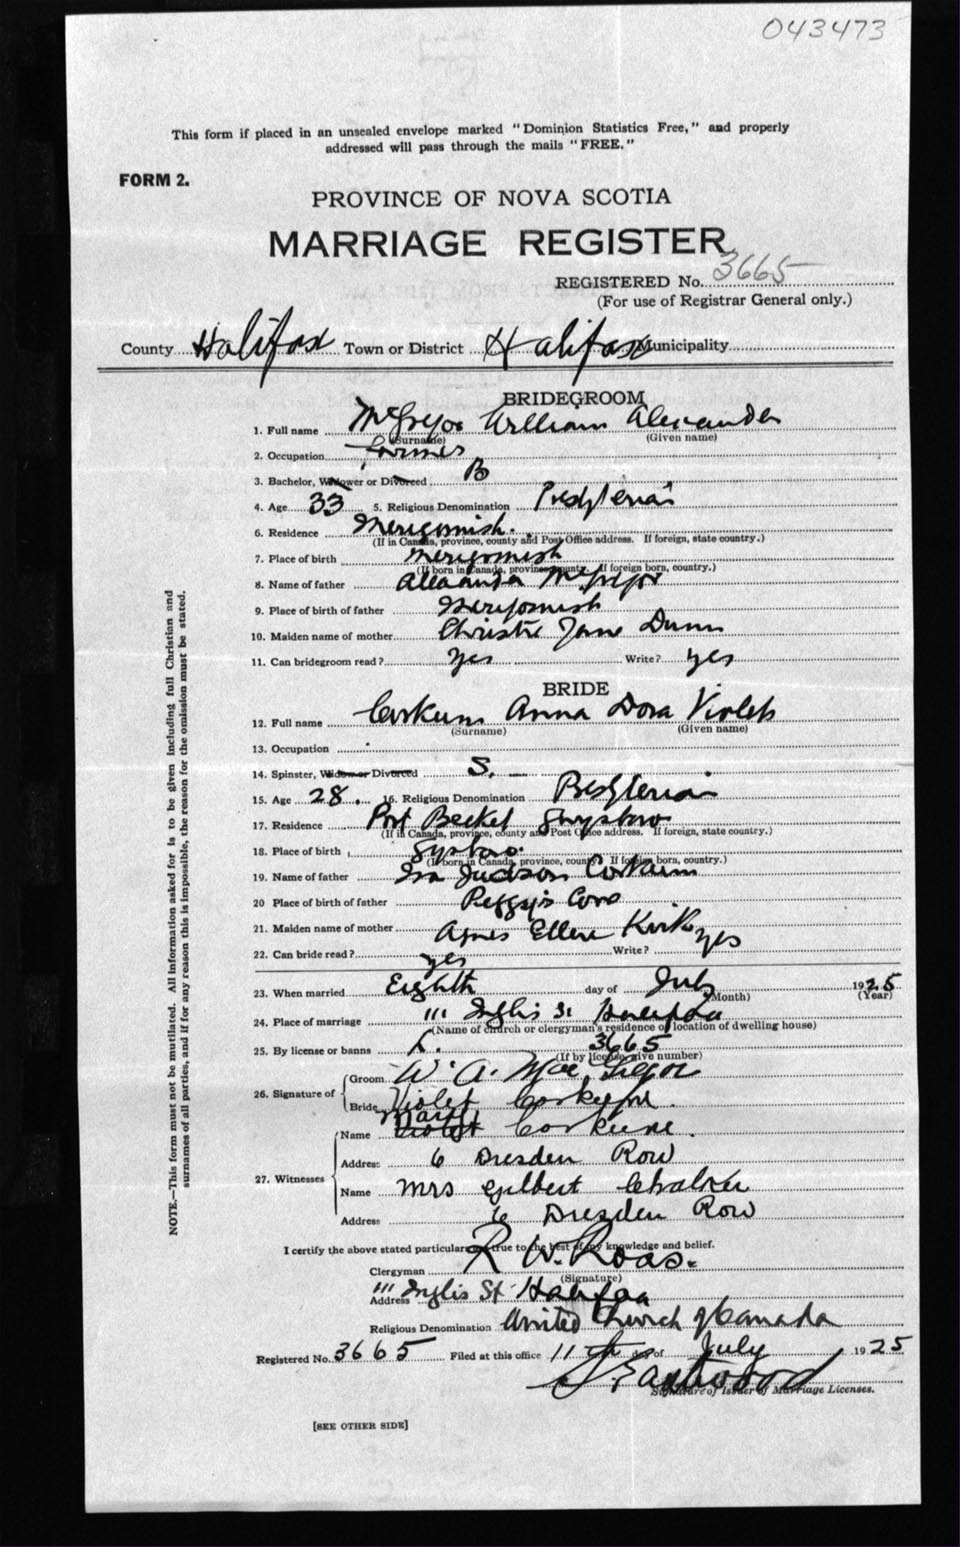 043473
This form if placed in an unsealed envelope marked "Dominion Statistics Free," and properly
addressed will pass through the mails "FREE."
FORM 2.
PROVINCE OF NOVA SCOTIA
MARRIAGE REGISTER
REGISTERED No. 3665
(For use of Registrar General only.)
County Halifax Town or District Halifax Municipality
BRIDEGROOM
1. Full name McGregor William Alexander
(Surname) (Given name)
2. Occupation Farmer
3. Bachelor, Widower or Divorced B
4. Age 33 5. Religious Denomination Presbyterian
6. Residence Merigomish
(If in Canada, province, county and Post Office address. If foreign, state country.)
7. Place of birth Merigomish
(If born in Canada, province, county. If foreign born, country.)
8. Name of father Alexander McGregor
9. Place of birth of father Merigomish
10. Maiden name of mother Christie Jane Dunn
11. Can bridegroom read? Yes Write? yes
BRIDE
12. Full name Corkum Anna Dora Violet
(Surname) (Given name)
13. Occupation
14. Spinster, Widow or Divorced S.
15. Age 28. 16. Religious Denomination Presbyterian
17. Residence Port Becket Guysboro
(If in Canada, province, county and Post Office address. If foreign, state country.)
18. Place of birth Gysboro.
(If born in Canada, province, county. If foreign born, country.)
19. Name of father Ira Judson Corkum
20 Place of birth of father Peggy's Cove
21. Maiden name of mother Agnes Ellen Kirk
22. Can bride read? yes Write? yes
23. When married Eighth day of July 1925
(Month) (Year)
24. Place of marriage 111 Inglis St Halifax
(Name of church or clergyman's residence or location of dwelling house)
25. By license or banns L. 3665
(If by license give number)
26. Signature of Groom W. A. MacGregor
Bride Violet Corkum.
27. Witnesses Name Mary Violet Corkum.
Address 6 Dresden Row
Name Mrs Gilbert
Address 6 Dresden Row
I certify the above stated particulars are true to the best of my knowledge and belief.
Clergyman R. W. Ross.
(Signature)
Address 111 Inglis St Halifax
Religious Denomination United Church of Canada
Registered No. 3665 Filed at this office 11th day of July 1925
Eastwood
Signature of Issuer of Marriage Licenses.
[SEE OTHER SIDE]
NOTE.—This form must not be mutilated. All information asked for is to be given including full Christian and
surnames of all parties, and if for any reason this is impossible, the reason for the omission must be stated.